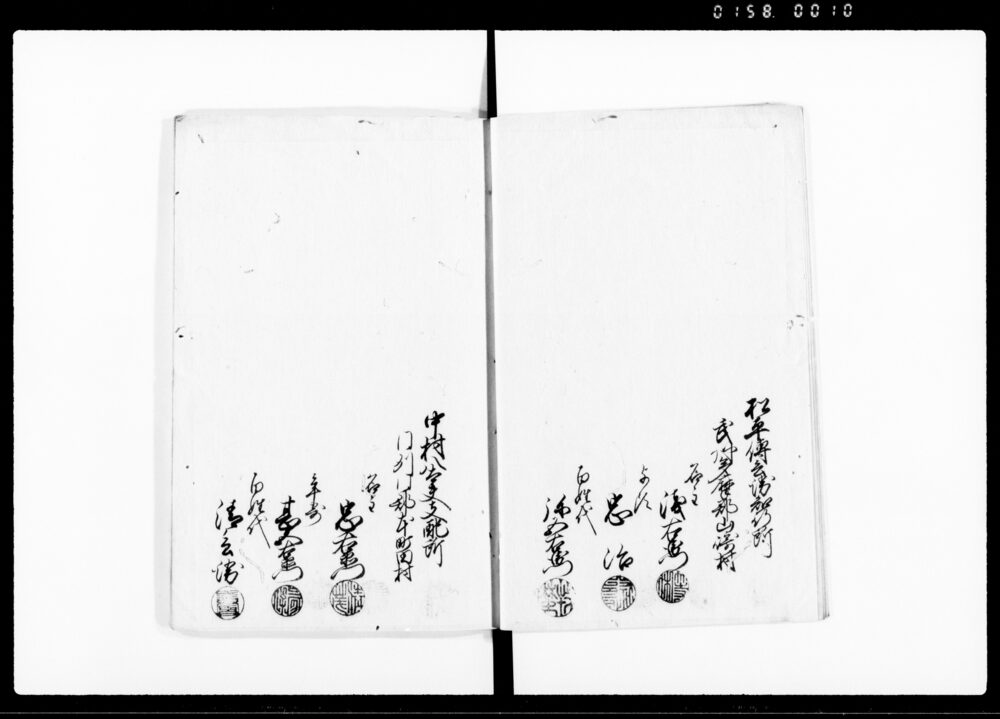 0158 0010
松平傳兵衛知行所
武州多摩郡山崎村
名主
儀右衛門
与頭
忠治
百姓代
弥右衛門
中村八太夫支配所
同州同郡本町田村
名主
忠右衛門
年寄
甚右衛門
百姓代
清兵衛